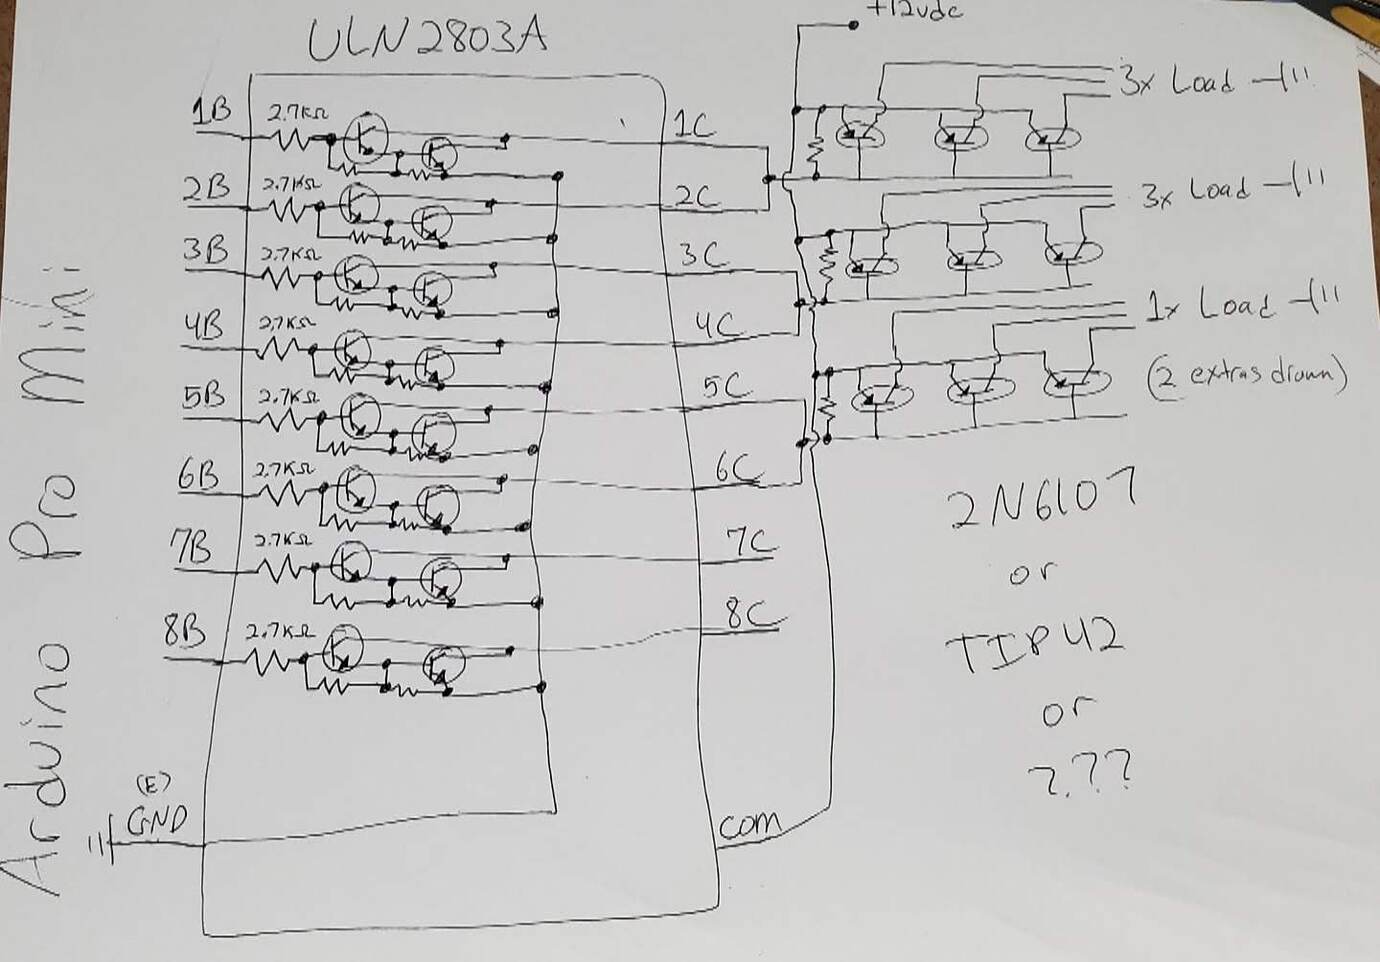 ULN2803A
+12vdc
Arduino Pro Mini:
1B 2.7KΩ 1C
3x Load
2B 2.7KΩ 2C
3x Load
3B 2.7KΩ 3C
1x Load
4B 2.7KΩ 4C
(2 extras drawn)
5B 2.7KΩ 5C
6B 2.7KΩ 6C
2N6107
7B 2.7KΩ 7C
or
8B 2.7KΩ 8C
TIP42
or
???
(E)
GND
COM